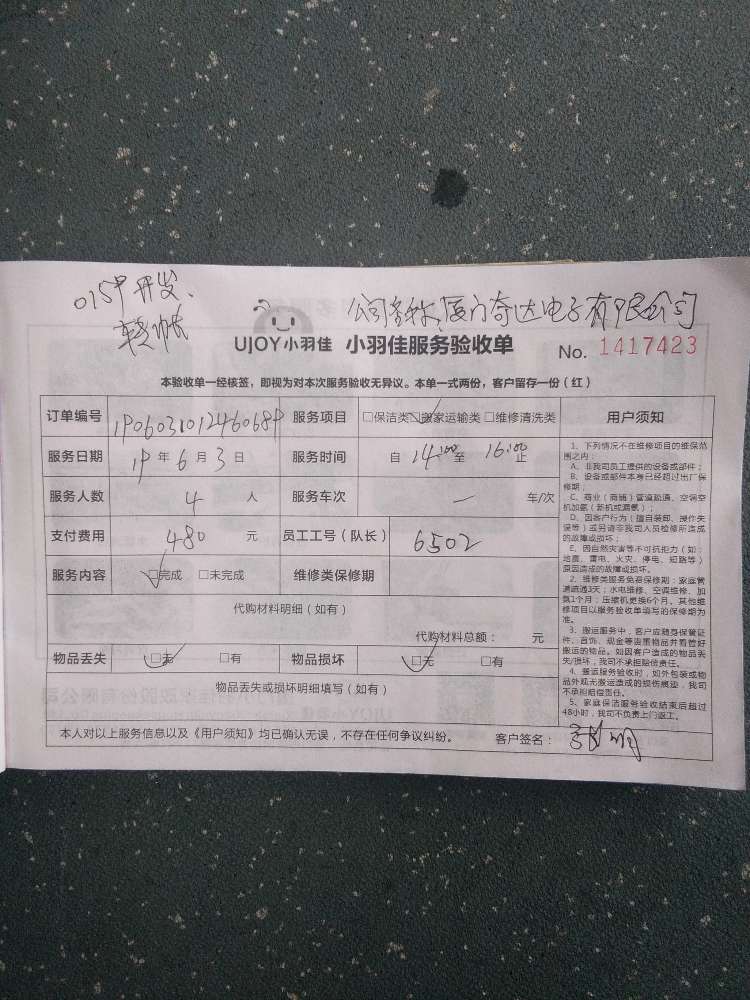 开发、
公司名称:厦门奇达电子有限公司
转帐
UJOY小羽佳 小羽佳服务验收单 No. 1417423
本验收单一经核签，即视为对本次服务验收无异议。本单一式两份，客户留存一份（红）
订单编号 服务项目 □保洁类 □搬家运输类 □维修清洗类 用户须知
服务日期 19年6月3日 服务时间 自14:00至16:00止
服务人数 4人 服务车次 一 车/次
支付费用 480元 员工工号（队长） 6502
服务内容 □完成 □未完成 维修类保修期
代购材料明细（如有）
代购材料总额： 元
物品丢失 □无 □有 物品损坏 □无 □有
物品丢失或损坏明细填写（如有）
本人对以上服务信息以及《用户须知》均已确认无误，不存在任何争议纠纷。 客户签名：
1、下列情况不在维修项目的维保范
围之内：
A、非我司员工提供的设备或部件；
B、设备或部件本身已经超过出厂保
修期；
C、商业（商铺）管道疏通、空调空
机加氟（新机或漏氟）；
D、因客户行为（擅自装卸、操作失
误等）或另请非我司人员检修所造成
的故障或损坏；
E、因自然灾害等不可抗拒力（如：
地震、雷电、火灾、停电、短路等）
原因造成的故障或损坏。
2、维修类服务免费保修期：家庭管
道疏通3天；水电维修、空调维修、加
氟1个月；压缩机更换6个月。其他维
修项目以服务验收单填写的保修期为
准。
3、搬运服务中，客户应随身保管证
件、首饰、现金等贵重物品并看管好
搬运的物品。如因客户造成的物品丢
失/损坏，我司不承担赔偿责任。
4、搬运服务验收时，如外包装或物
品外观无搬运造成的损伤痕迹，我司
不承担赔偿责任。
5、家庭保洁服务验收结束后超过
48小时，我司不负责上门返工。